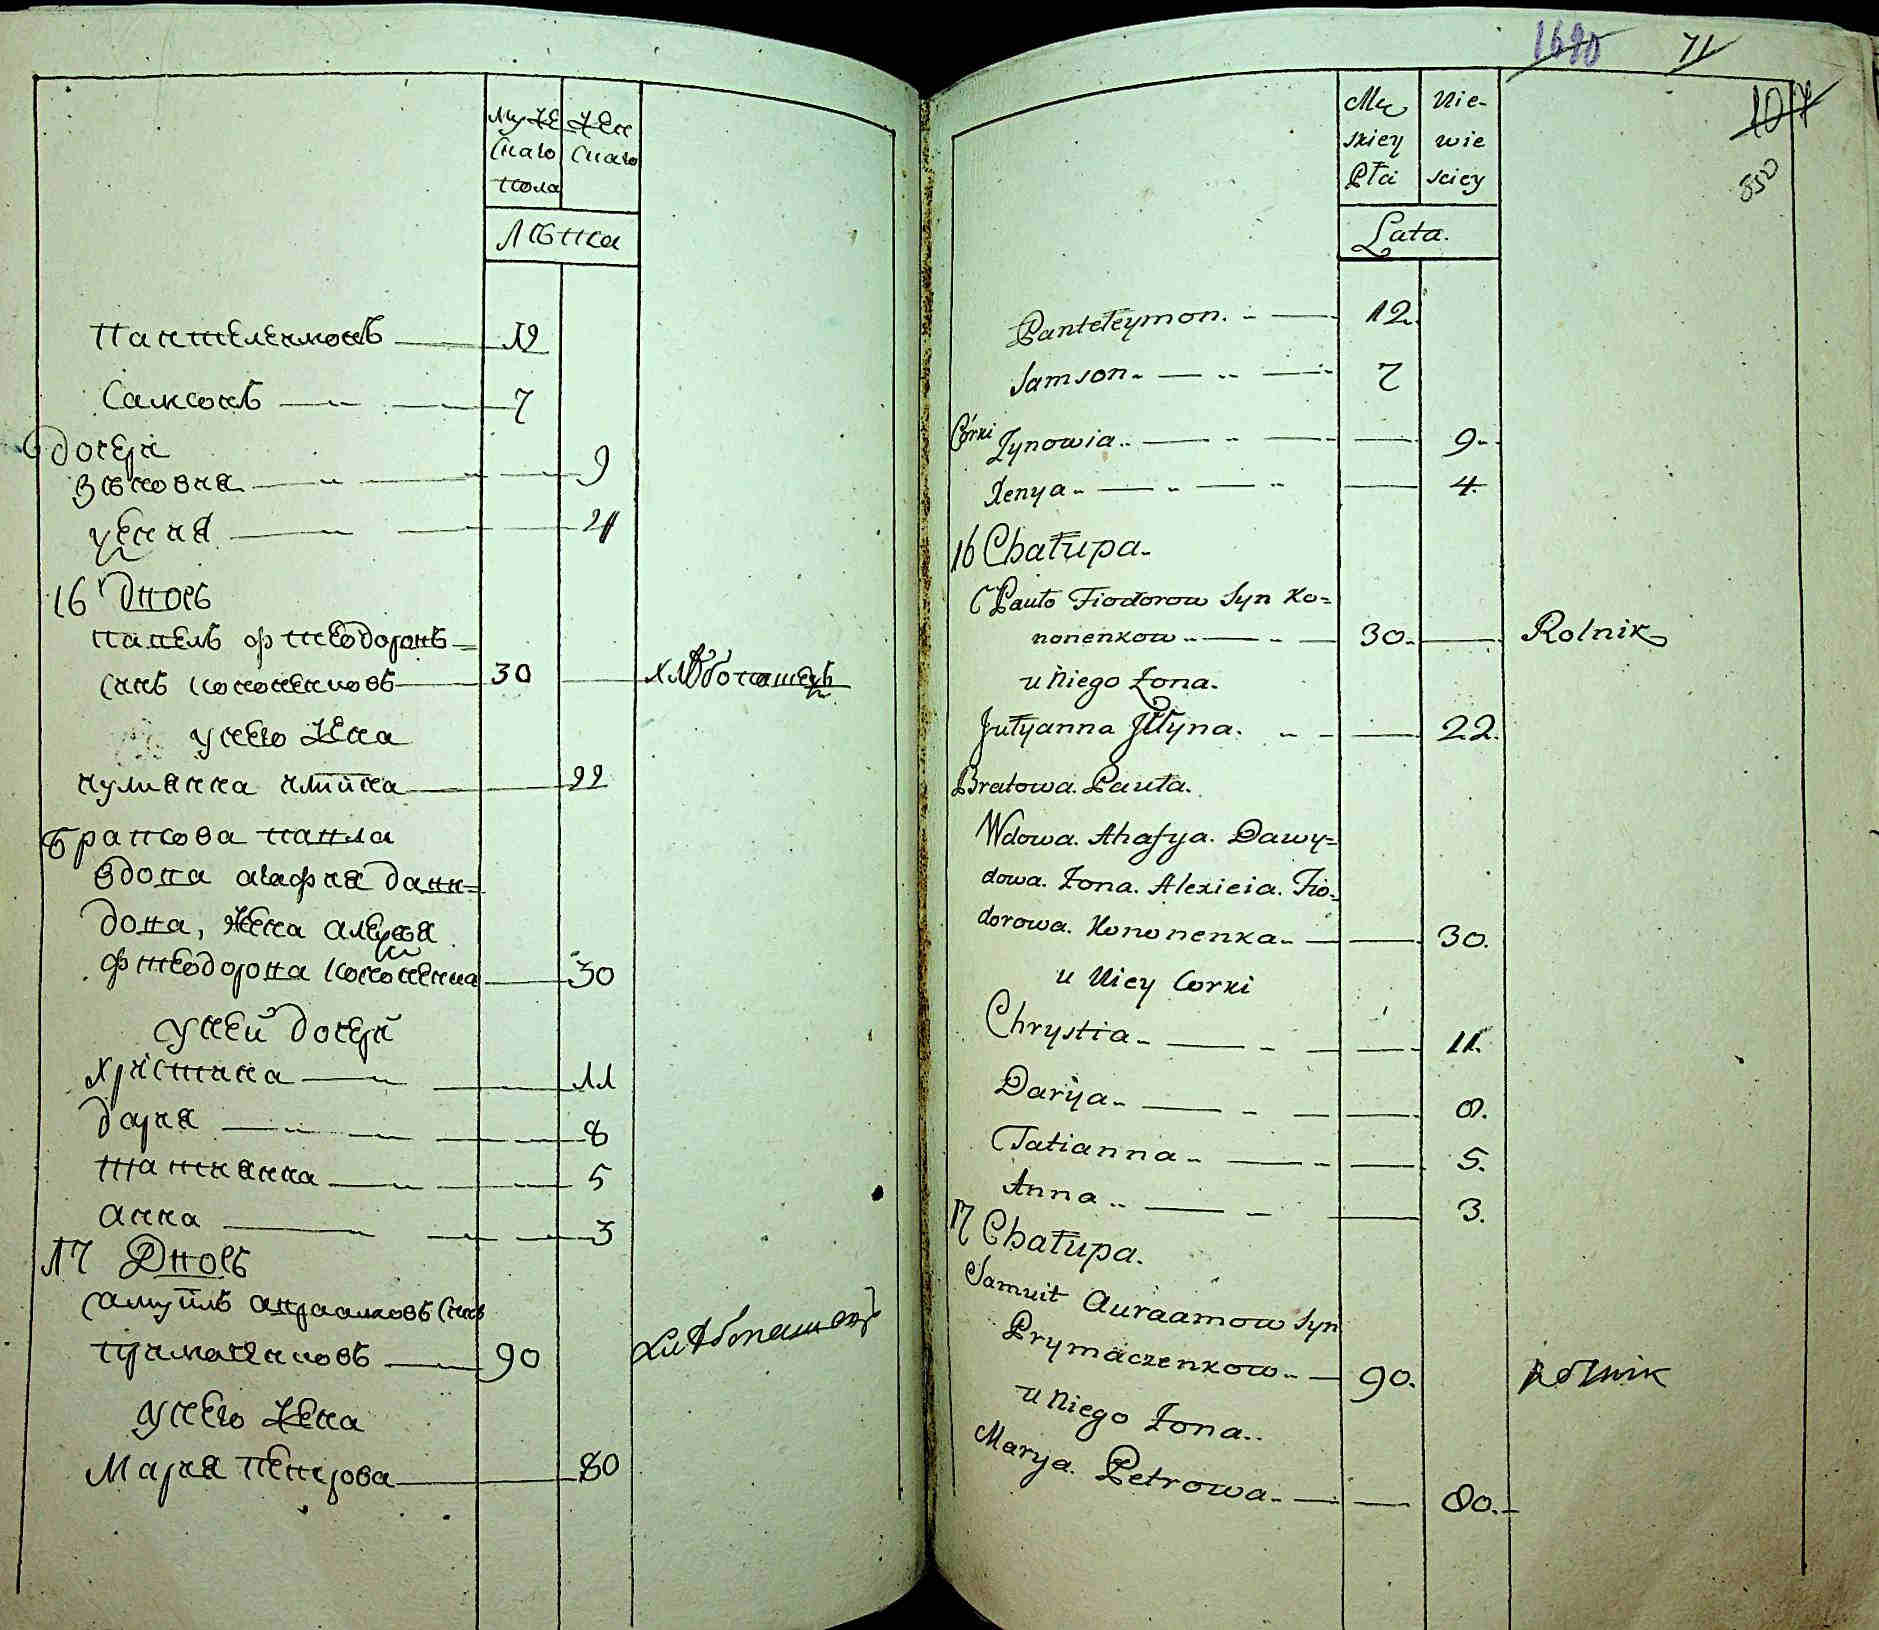 Мужескаго пола
Женскаго
Лѣта
Пантелеимонъ 12
Самсонъ 7
дочери
Зѣновия 9
Ксения 4
16 Дворъ
Павелъ Ѳтеодоровъ
синъ Кононенковъ 30 хлѣбопашецъ
у него жена
иулианна илӥина 22
Братова павла
вдова агафия дави=
дова, жена алексѣя
Ѳтеодорова Кононенка 30
у ней дочери
Христина 11
дария 8
татиянна 5
анна 3
17 Дворъ
Самуилъ авраамовъ синъ
примаченковъ 90 хлѣбопашецъ
у него жена
Мария петрова 80
1680 71
107
550
Męskiey Płci
Niewiesciey
Lata.
Panteleymon. 12.
Samson. 7
Córki Zynowia 9.
Xenya 4.
16 Chałupa.
Pawło Fiodorow Syn Ko=
nonenkow 30. Rolnik
u Niego Żona.
Julyanna Jllyna. 22.
Bratowa. Pawła.
Wdowa. Ahafya. Dawy=
dowa. Żona. Alexieia. Fio=
dorowa. Kononenka. 30.
u Niey Corki
Chrystia 11.
Darya 8.
Tatianna 5.
Anna 3.
17 Chałupa.
Samuil Auraamow Syn
Prymaczenkow 90. Rolnik
u Niego Żona.
Marya. Petrowa. 80.